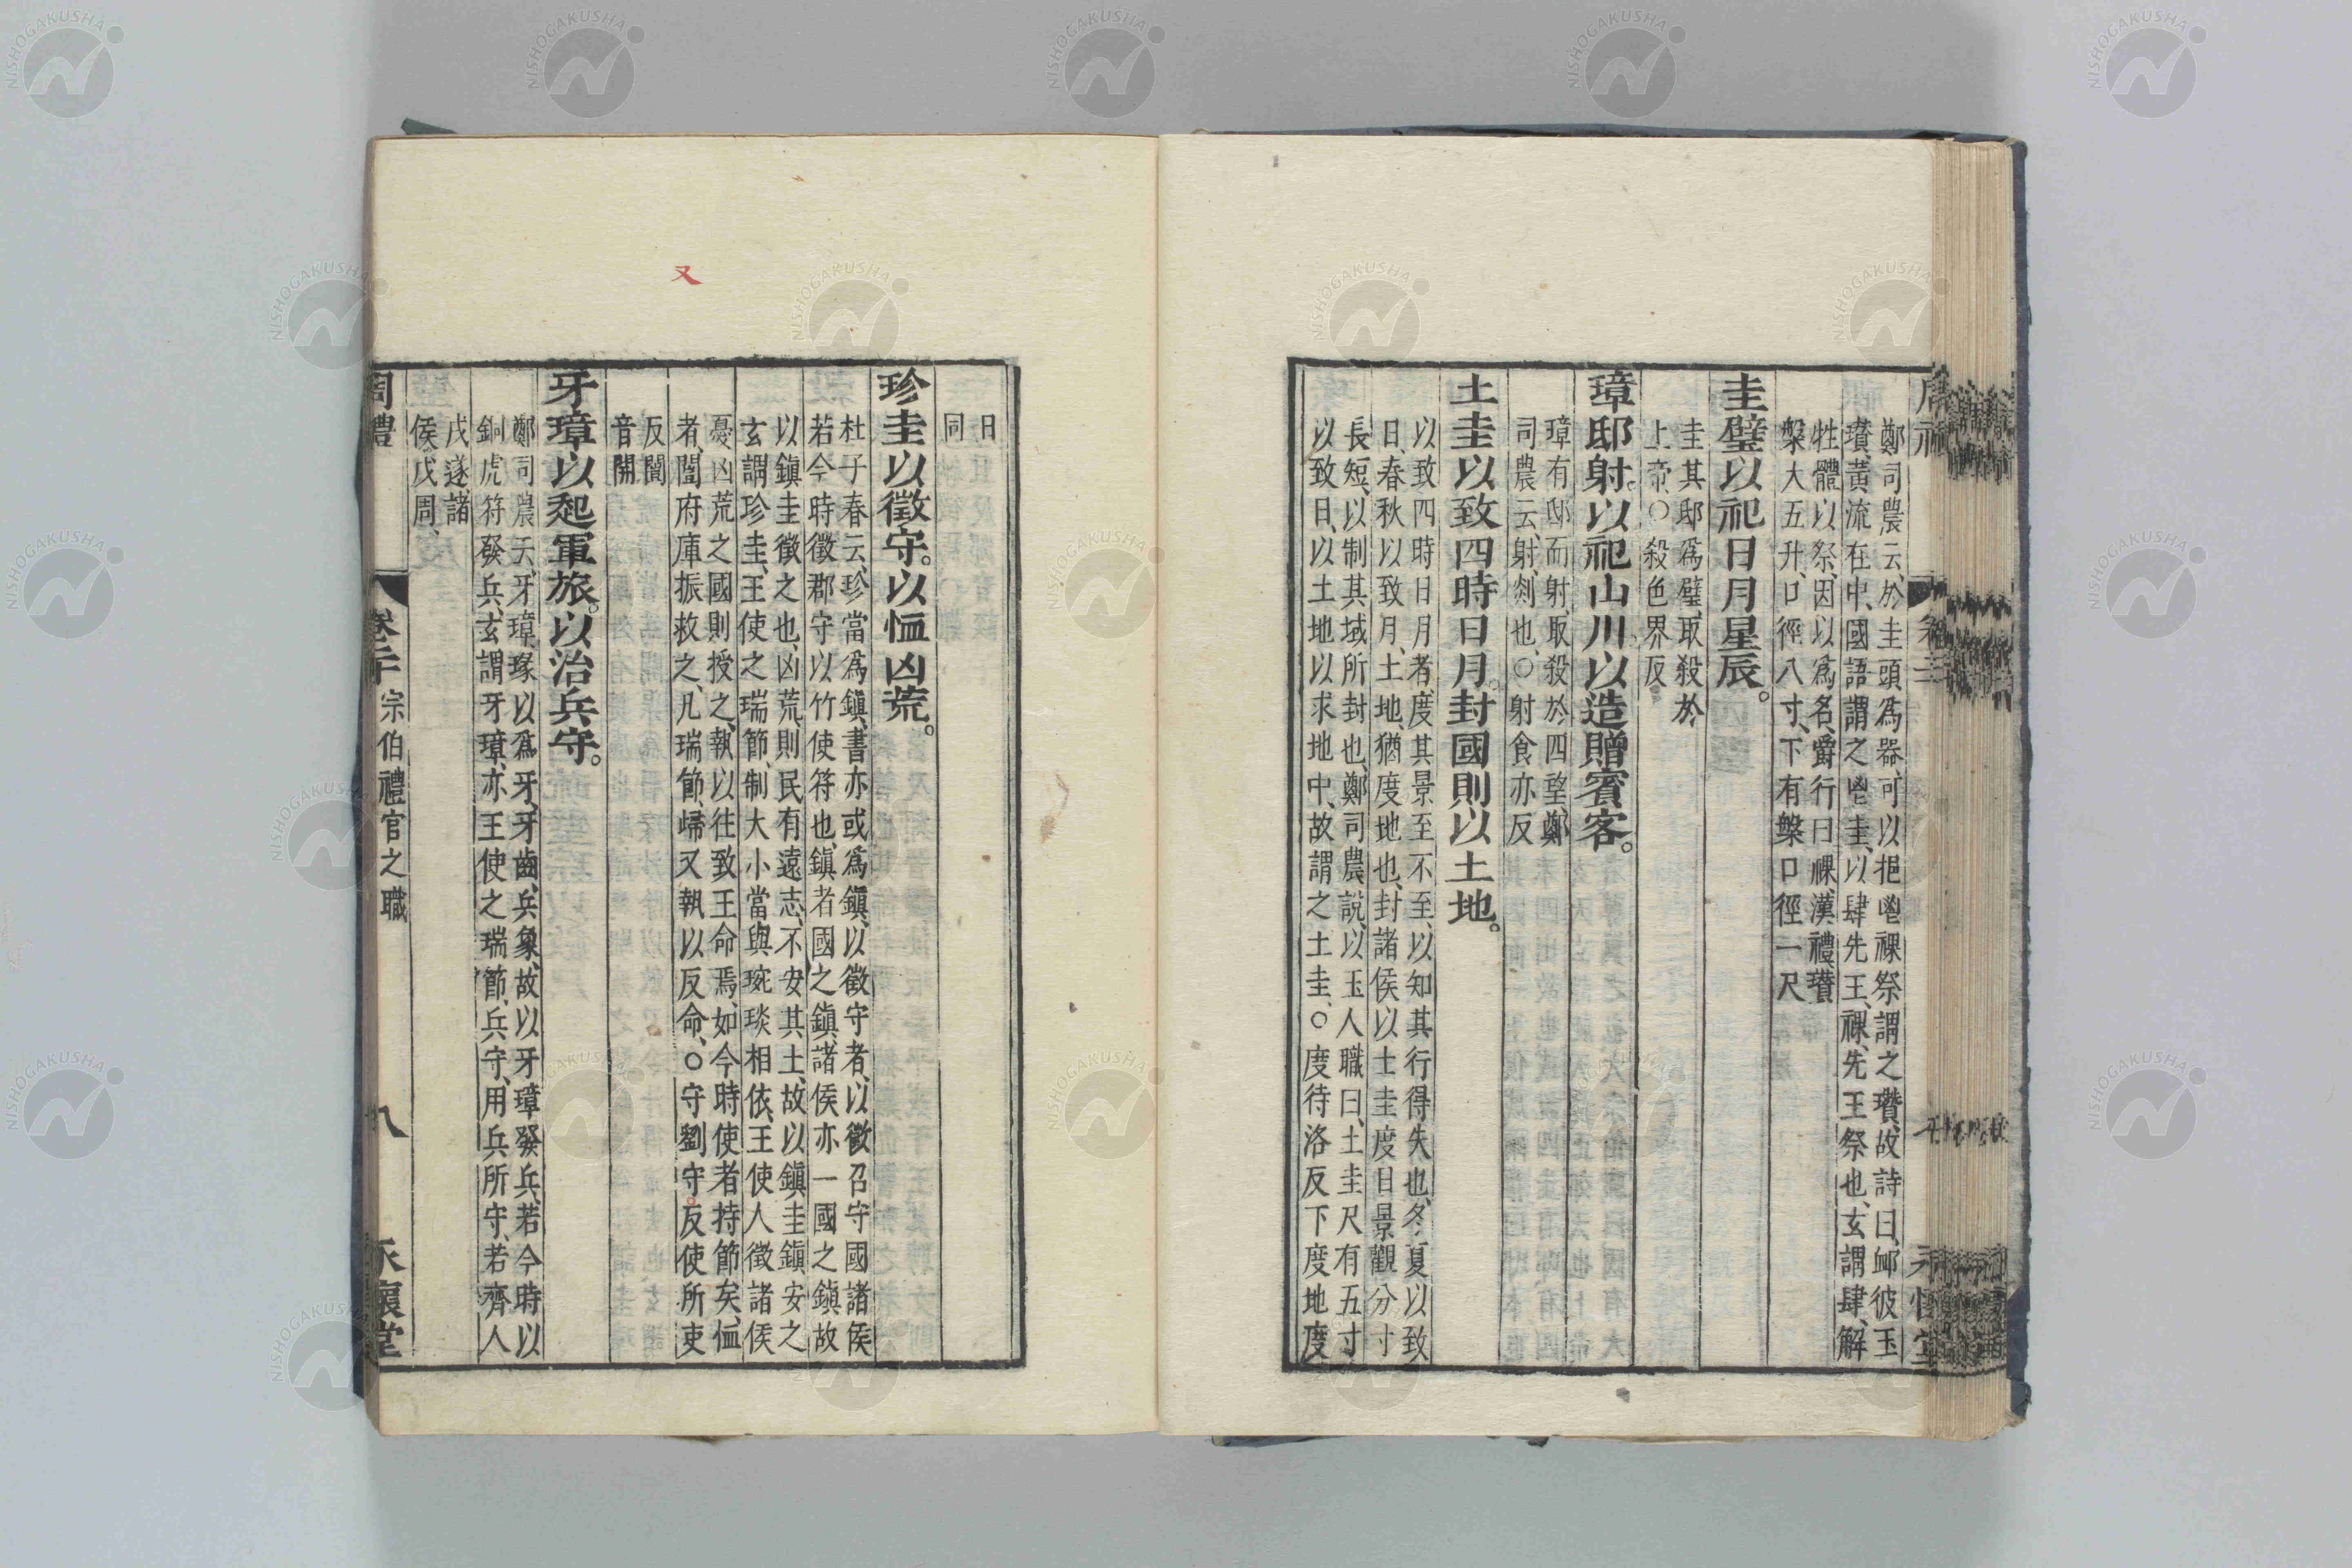 鄭司農云、於圭頭爲器、可以挹鬯祼祭謂之瓚、故詩曰、卹彼玉
瓚、黃流在中、國語謂之鬯圭、以肆先王、祼、先王祭也、玄謂肆、解
牲體以祭、因以爲名、爵行曰祼、漢禮、瓚
槃大五升、口徑八寸、下有槃口徑一尺
圭璧以祀日月星辰。
圭其邸爲璧、取殺於
上帝、○殺色界反
璋邸射。以祀山川、以造贈賓客。
璋有邸而射、取殺於四望、鄭
司農云、射、剡也、○射食亦反
土圭以致四時日月。封國則以土地。
以致四時日月者、度其景至不至、以知其行得失也、冬夏以致
日、春秋以致月、土地、猶度地也、封諸侯以土圭度日景觀分寸
長短、以制其域所封也、鄭司農說、以玉人職曰、土圭尺有五寸
以致日、以土地以求地中、故謂之土圭、○度待洛反下度地度
日
同
珍圭以徵守。以恤凶荒。
杜子春云、珍當爲鎭、書亦或爲鎭、以徵守者、以徵召守國諸侯
若今時徵郡守以竹使符也、鎭者國之鎭、諸侯亦一國之鎭、故
以鎭圭徵之也、凶荒、則民有遠志、不安其土、故以鎭圭鎭安之
玄謂珍圭、王使之瑞節、制大小當與琬琰相依、王使人徵諸侯
憂凶荒之國則授之、執以往致王命焉、如今時使者持節矣、恤
者、闓府庫振救之、凡瑞節、歸又執以反命、○守劉守。反使所吏
反闓
音開
牙璋以起軍旅。以治兵守。
鄭司農云、牙璋、瑑以爲牙、牙齒、兵象、故以牙璋發兵、若今時以
銅虎符發兵、玄謂牙璋、亦王使之瑞節、兵守、用兵所守、若齊人
戍遂諸
侯戍周、
周禮 卷二十 宗伯禮官之職 八 永懷堂
又